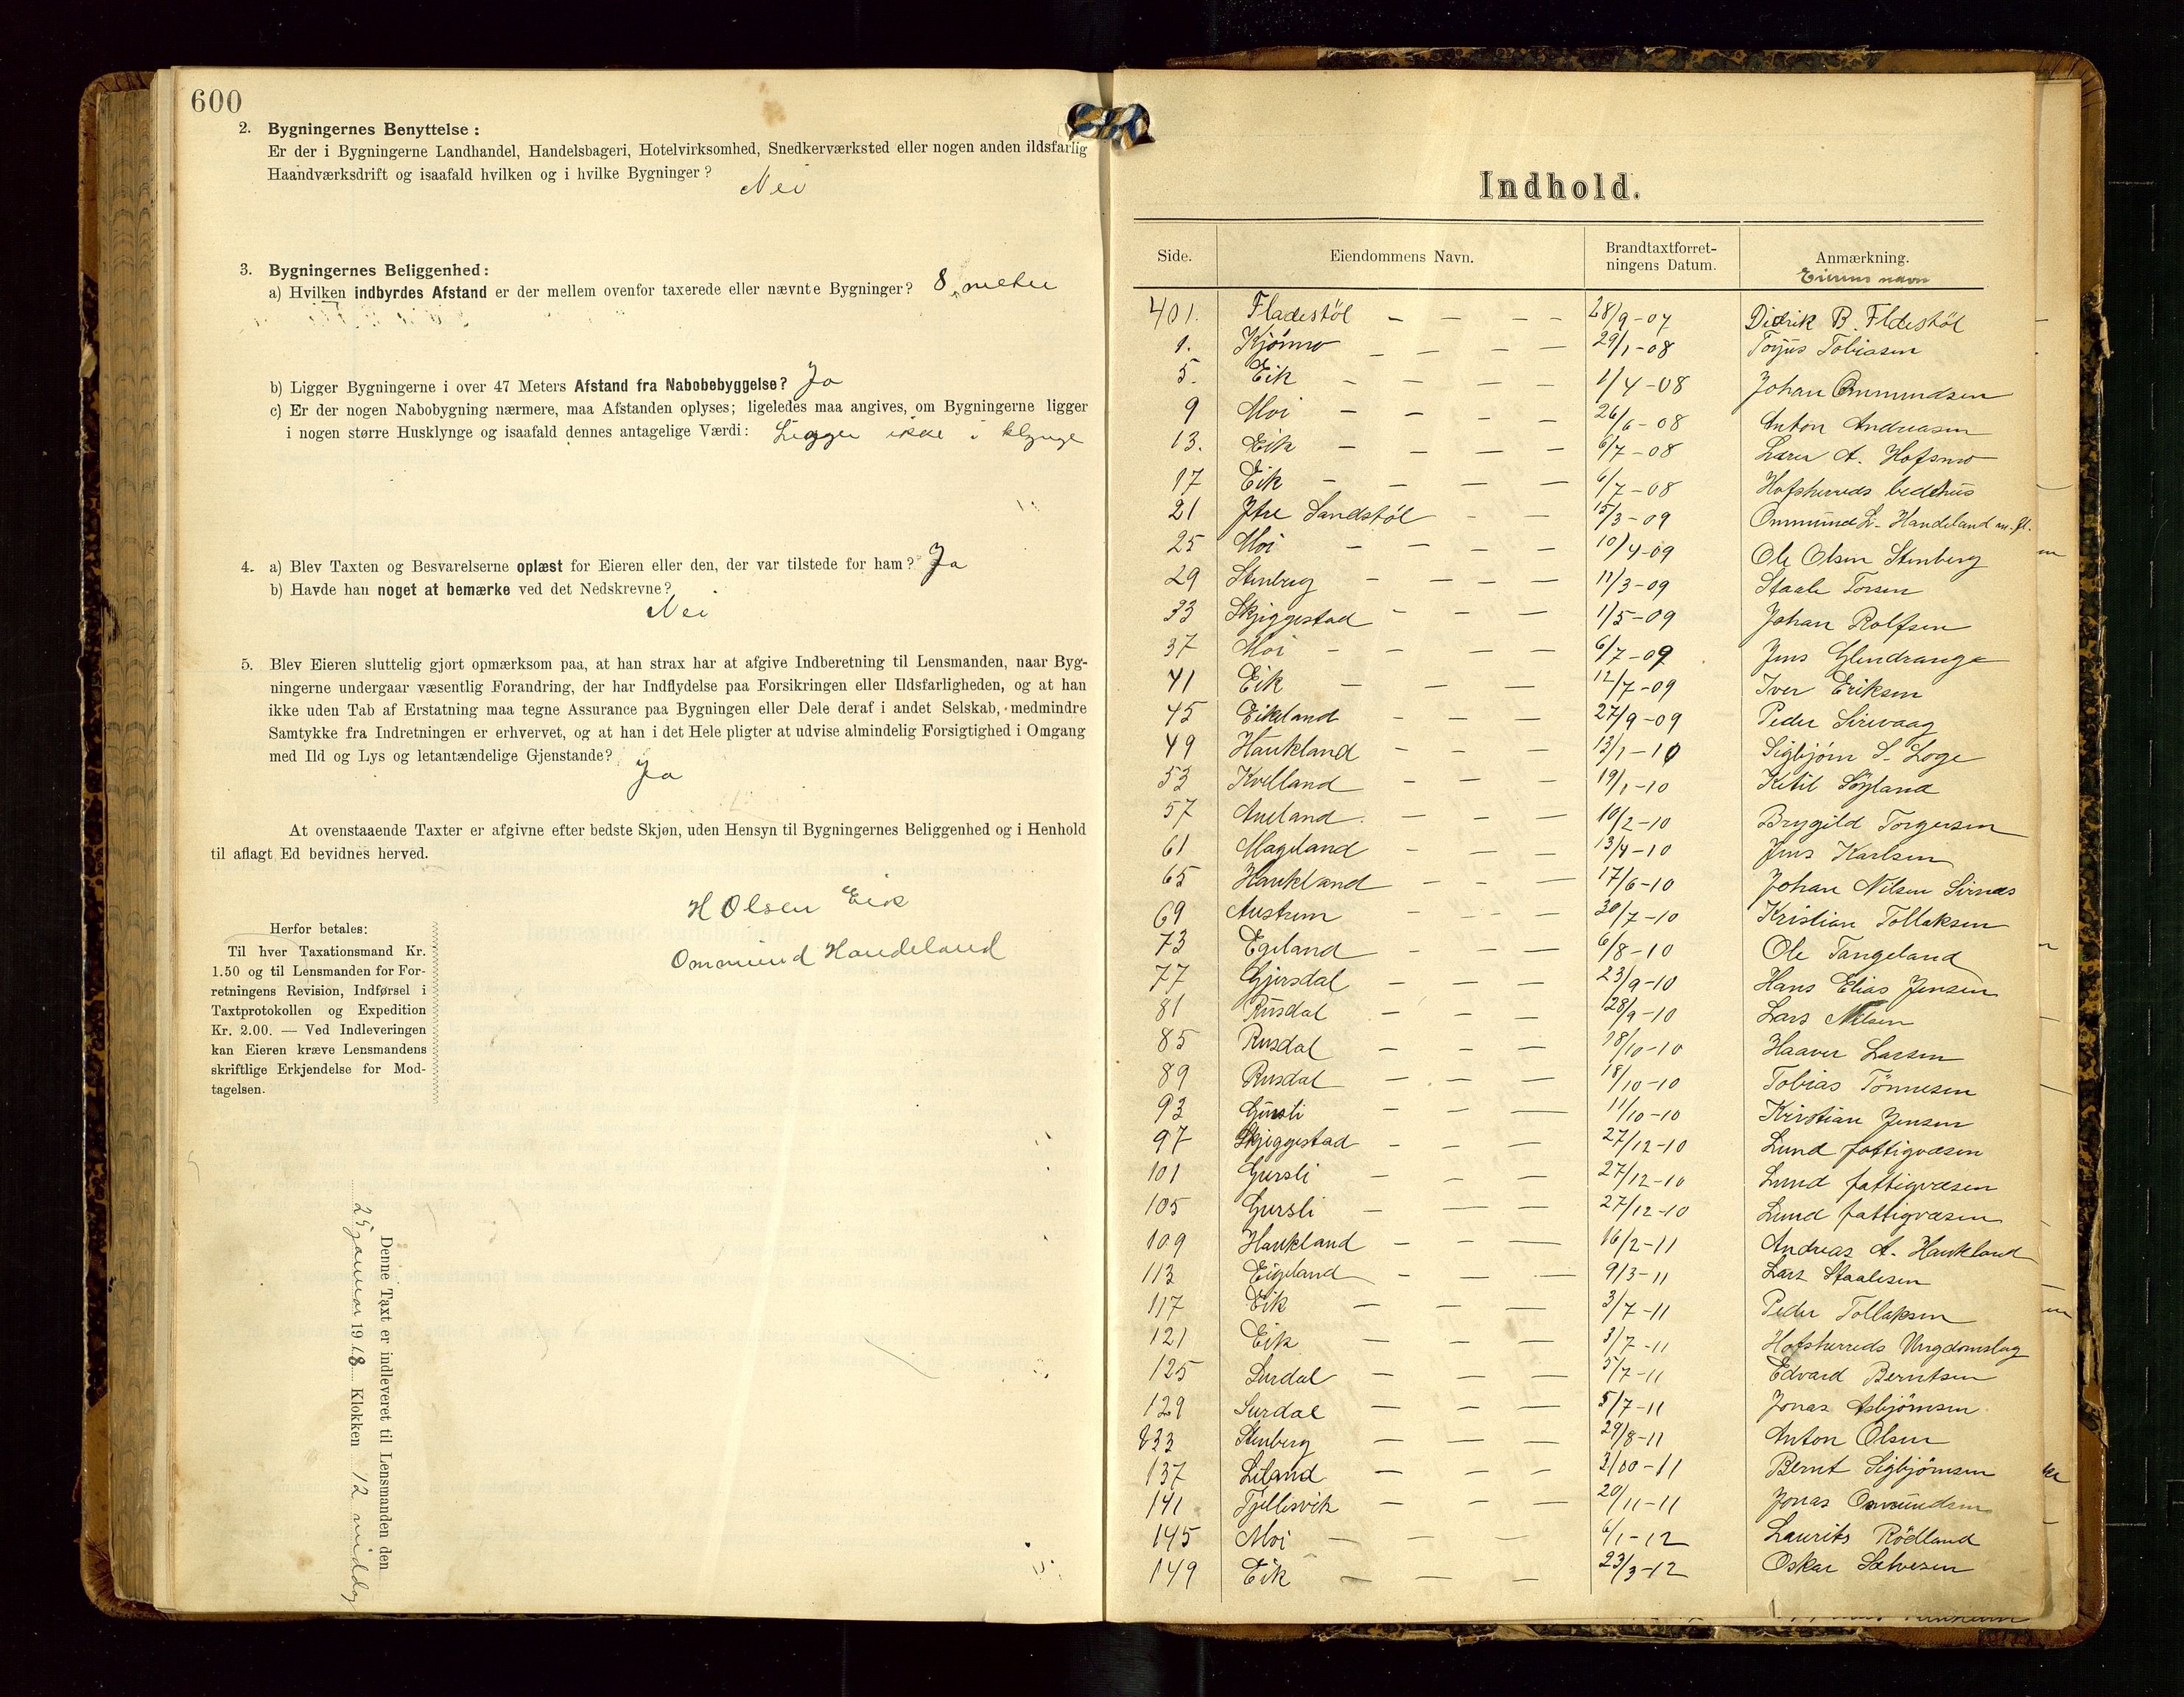 600
2. Bygningernes Benyttelse:
Er der i Bygningerne Landhandel, Handelsbageri, Hotelvirksomhed, Snedkerværksted eller nogen anden ildsfarlig
Haandværksdrift og isaafald hvilken og i hvilke Bygninger? Nei
3. Bygningernes Beliggenhed:
a) Hvilken indbyrdes Afstand er der mellem ovenfor taxerede eller nævnte Bygninger? 8 meter
b) Ligger Bygningerne i over 47 Meters Afstand fra Nabobebyggelse? Ja
c) Er der nogen Nabobygning nærmere, maa Afstanden oplyses; ligeledes maa angives, om Bygningerne ligger
i nogen større Husklynge og isaafald dennes antagelige Værdi: Ligger ikke i klynge
4. a) Blev Taxten og Besvarelserne oplæst for Eieren eller den, der var tilstede for ham? Ja
b) Havde han noget at bemærke ved det Nedskrevne?
Nei
5. Blev Eieren sluttelig gjort opmærksom paa, at han strax har at afgive Indberetning til Lensmanden, naar Byg-
ningerne undergaar væsentlig Forandring, der har Indflydelse paa Forsikringen eller Ildsfarligheden, og at han
ikke uden Tab af Erstatning maa tegne Assurance paa Bygningen eller Dele deraf i andet Selskab, medmindre
Samtykke fra Indretningen er erhvervet, og at han i det Hele pligter at udvise almindelig Forsigtighed i Omgang
med Ild og Lys og letantændelige Gjenstande? Ja
At ovenstaaende Taxter er afgivne efter bedste Skjøn, uden Hensyn til Bygningernes Beliggenhed og i Henhold
til aflagt Ed bevidnes herved.
H Olsen Eik
Ommund Handeland
Herfor betales:
Til hver Taxationsmand Kr.
1.50 og til Lensmanden for For-
retningens Revision, Indførsel i
Taxtprotokollen og Expedition
Kr. 2.00. — Ved Indleveringen
kan Eieren kræve Lensmandens
skriftlige Erkjendelse for Mod-
tagelsen.
Denne Taxt er indleveret til Lensmanden den
25 januar 1918 Klokken 12 middag
Indhold.
Side. Eiendommens Navn. Brandtaxtforret-ningens Datum. Anmærkning.
Eierens navn
401. Fladestöl — — — — 28/9-07 Didrik B. Fldestöl
1. Kjörmo — — — — 29/1-08 Torjus Tobiasen
5. Eik — — — — 1/4-08 Johan Ommundsen
9 Moi — — — — 26/6-08 Anton Andreasen
13. Eik — — — — 6/7-08 Lars A. Hofsmo
17 Eik — — — — 6/7-08 Hofsherreds bedehus
21 Ytre Sandstöl — — — 15/3-09 Ommund L. Handeland m. fl.
25 Moi — — — — 10/4-09 Ole Olsen Stenberg
29 Stenberg — — — — 11/3-09 Staale Torsen
33 Skjeggestad — — — 1/5-09 Johan Rolfsen
37 Moi — — — — 6/7-09 Jens Glendrange
41 Eik — — — 12/7-09 Iver Eriksen
45 Eikeland — — — 27/9-09 Peder Sirevaag
49 Haukland — — — 13/1-10 Sigbjörn S. Loge
53 Kvelland — — — 19/1-10 Ketil Söyland
57 Aueland — — — 10/2-10 Brygild Torgersen
61 Mageland — — — 13/4-10 Jens Karlsen
65 Haukland — — — 17/6-10 Johan Nilsen Sirnes
69 Austrum — — — 30/7-10 Kristian Tollaksen
73 Egeland — — — 6/8-10 Ole Tangeland
77 Gjersdal — — — 23/9-10 Hans Elias Jensen
81 Rusdal — — — 28/9-10 Lars Nilsen
85 Rusdal — — — 18/10-10 Haaver Larsen
89 Rusdal — — — 18/10-10 Tobias Tönnesen
93 Gursli — — — 11/10-10 Kristian Jensen
97 Skjeggestad — — — 27/12-10 Lund fattigvæsen
101 Gursli — — — 27/12-10 Lund fattigvæsen
105 Gursli — — — 27/12-10 Lund fattigvæsen
109 Haukland — — — 16/2-11 Andreas A. Haukland
113 Eigeland — — — 9/3-11 Lars Staalesen
117 Eik — — — 3/7-11 Peder Tollaksen
121 Eik — — — 3/7-11 Hofsherreds Ungdomslag
125 Surdal — — — 5/7-11 Edvard Berntsen
129 Surdal — — — 5/7-11 Jonas Asbjörnsen
133 Stenberg — — — 29/8-11 Anton Olsen
137 Liland — — — 3/10-11 Bernt Sigbjörnsen
141 Tjellesvik — — — 20/11-11 Jonas Omundsen
145 Moi — — — 6/1-12 Laurits Rödland
149 Eik — — — 23/3-12 Oskar Salvesen